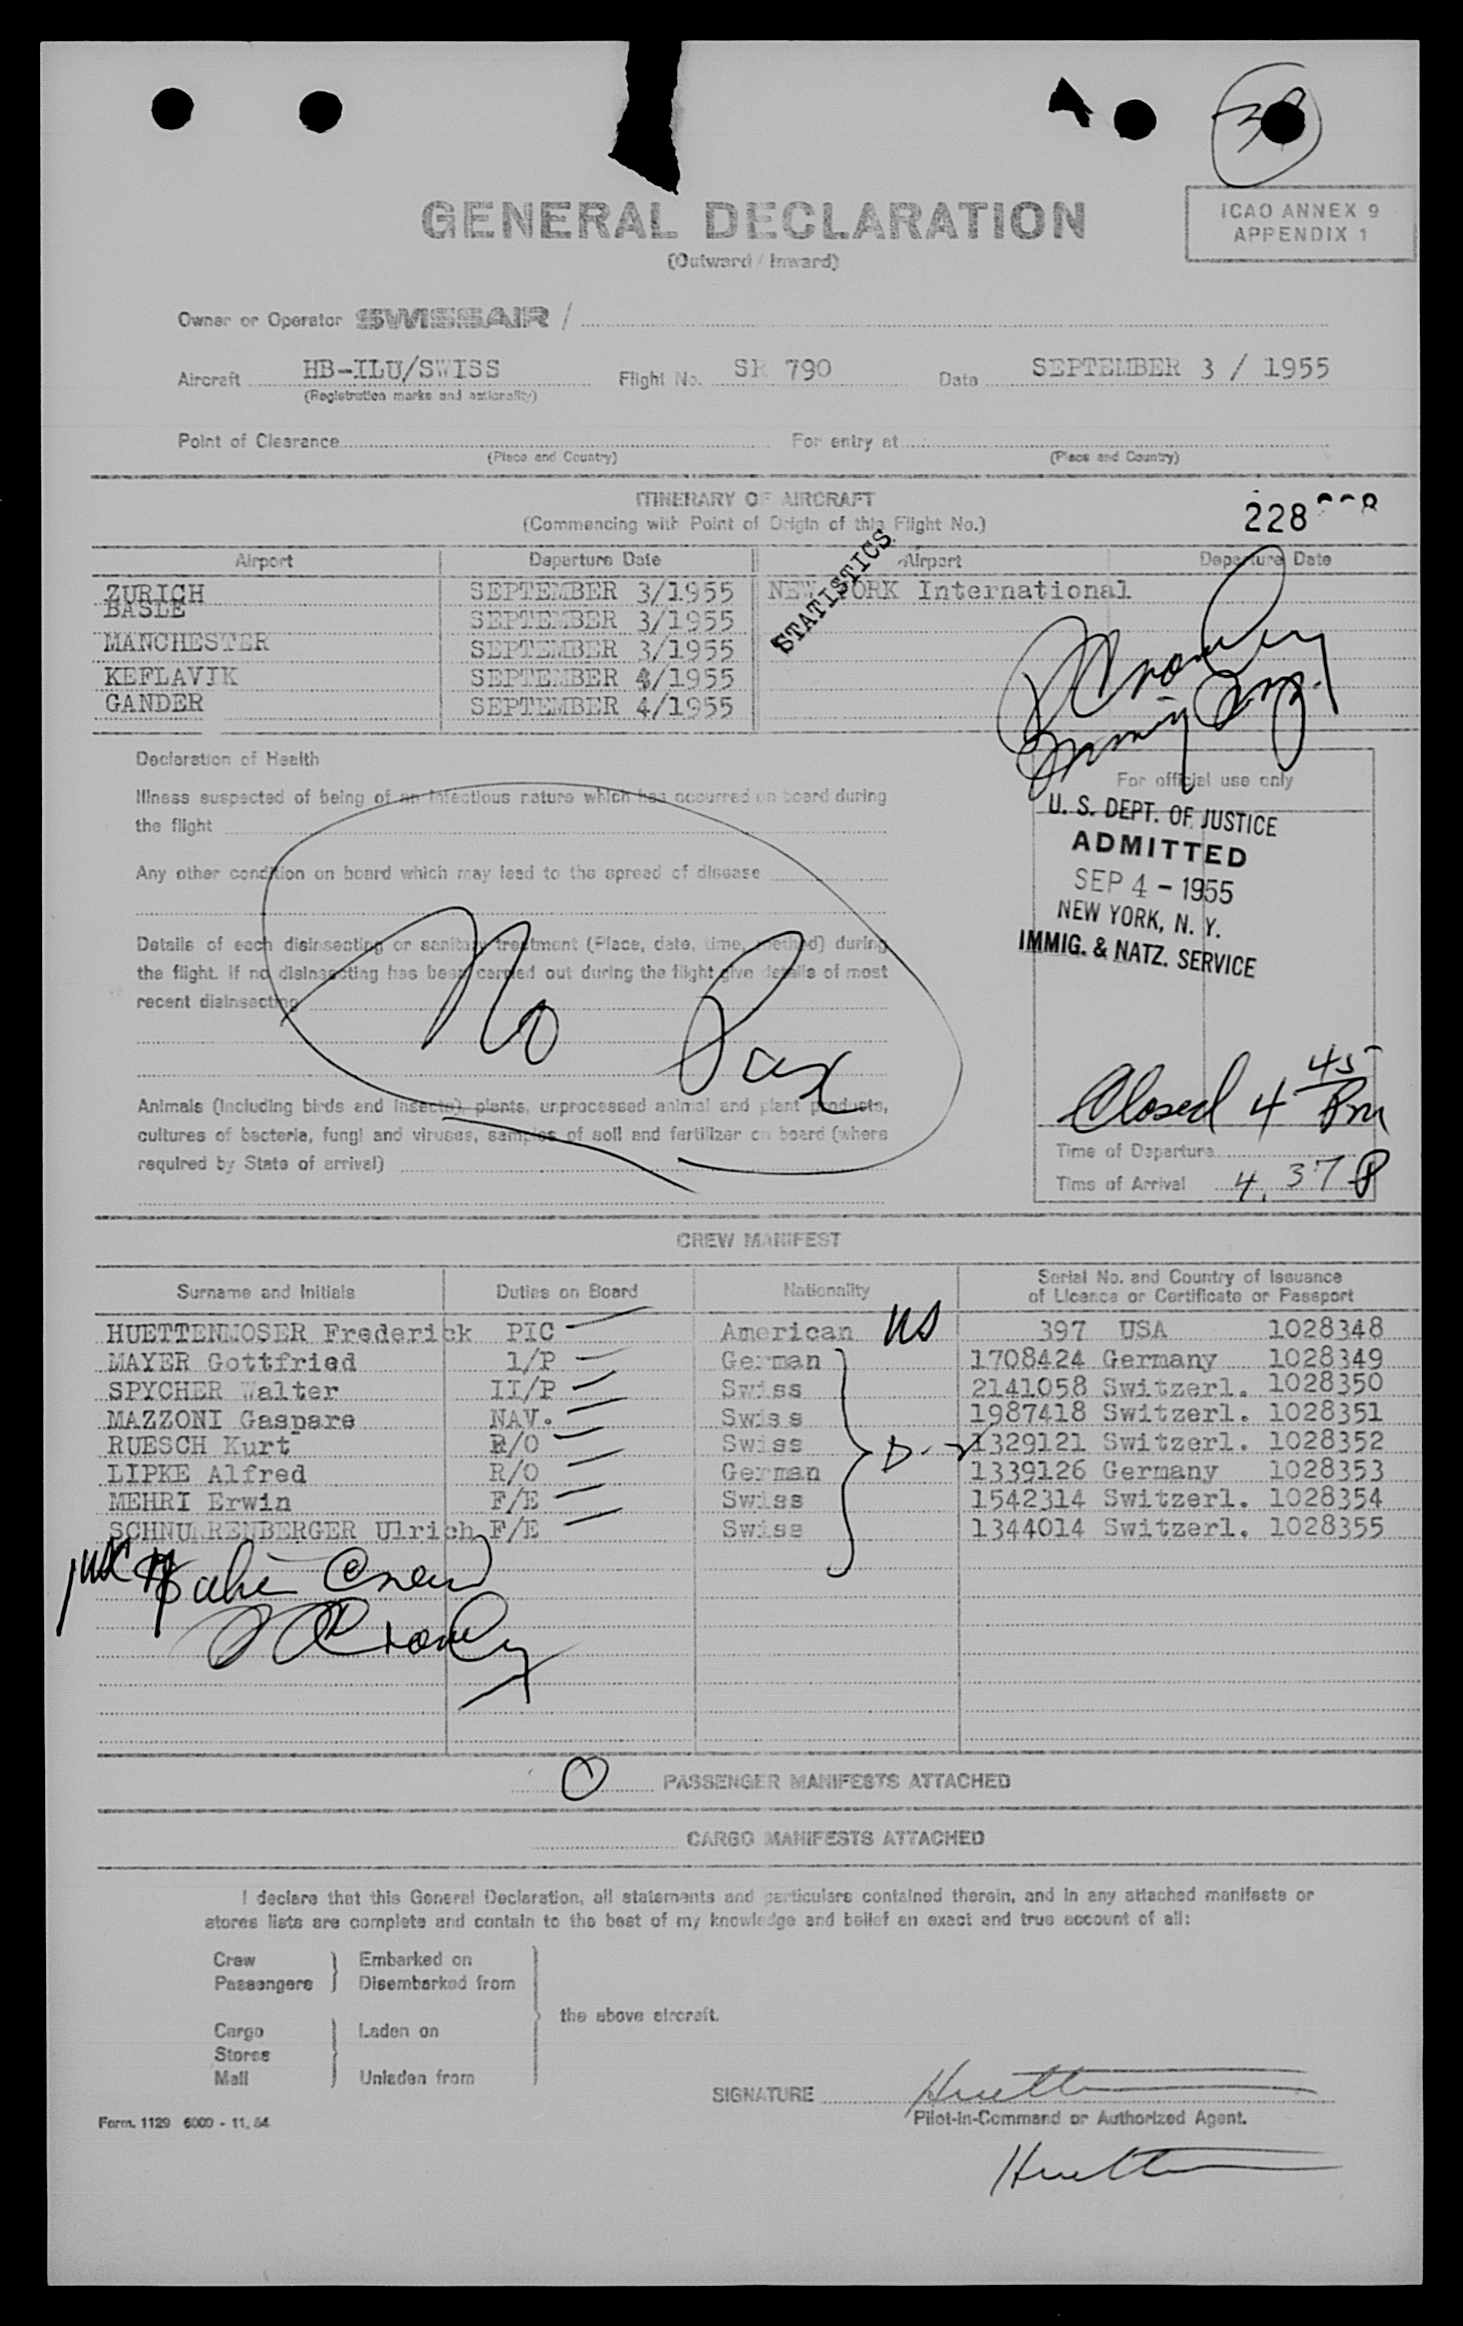 GENERAL DECLARATION
(Outward / Inward)
ICAO ANNEX 9
APPENDIX 1
Owner or Operator SWISSAIR /
Aircraft HB-ILU/SWISS Flight No. SR 790 Date SEPTEMBER 3 / 1955
(Registration marks and nationality)
Point of Clearance For entry at
(Place and Country) (Place and Country)
ITINERARY OF AIRCRAFT
(Commencing with Point of Origin of this Flight No.)
228
STATISTICS
Airport Departure Date Airport Departure Date
ZURICH SEPTEMBER 3/1955 NEW YORK International
BASLE SEPTEMBER 3/1955
MANCHESTER SEPTEMBER 3/1955
KEFLAVIK SEPTEMBER 4/1955
GANDER SEPTEMBER 4/1955
Declaration of Health
Illness suspected of being of an infectious nature which has occurred on board during
the flight
Any other condition on board which may lead to the spread of disease
Details of each disinsecting or sanitary treatment (Place, date, time, method) during
the flight. If no disinsecting has been carried out during the flight give details of most
recent disinsecting
No Pax
Animals (including birds and insects), plants, unprocessed animal and plant products,
cultures of bacteria, fungi and viruses, samples of soil and fertilizer on board (where
required by State of arrival)
For official use only
U. S. DEPT. OF JUSTICE
ADMITTED
SEP 4 - 1955
NEW YORK, N. Y.
IMMIG. & NATZ. SERVICE
Closed 4 45 Pm
Time of Departure
Time of Arrival 4.37 P
CREW MANIFEST
Surname and Initials Duties on Board Nationality Serial No. and Country of Issuance
of Licence or Certificate or Passport
HUETTENMOSER Frederick PIC American US 397 USA 1028348
MAYER Gottfried 1/P German 1708424 Germany 1028349
SPYCHER Walter II/P Swiss 2141058 Switzerl. 1028350
MAZZONI Gaspare NAV. Swiss 1987418 Switzerl. 1028351
RUESCH Kurt R/O Swiss 1329121 Switzerl. 1028352
LIPKE Alfred R/O German 1339126 Germany 1028353
MEHRI Erwin F/E Swiss 1542314 Switzerl. 1028354
SCHNURRENBERGER Ulrich F/E Swiss 1344014 Switzerl. 1028355
0 PASSENGER MANIFESTS ATTACHED
CARGO MANIFESTS ATTACHED
I declare that this General Declaration, all statements and particulars contained therein, and in any attached manifests or
stores lists are complete and contain to the best of my knowledge and belief an exact and true account of all:
Crew Embarked on
Passengers Disembarked from
the above aircraft.
Cargo Laden on
Stores
Mail Unladen from
SIGNATURE
Pilot-in-Command or Authorized Agent.
Form. 1129 6000 - 11. 54